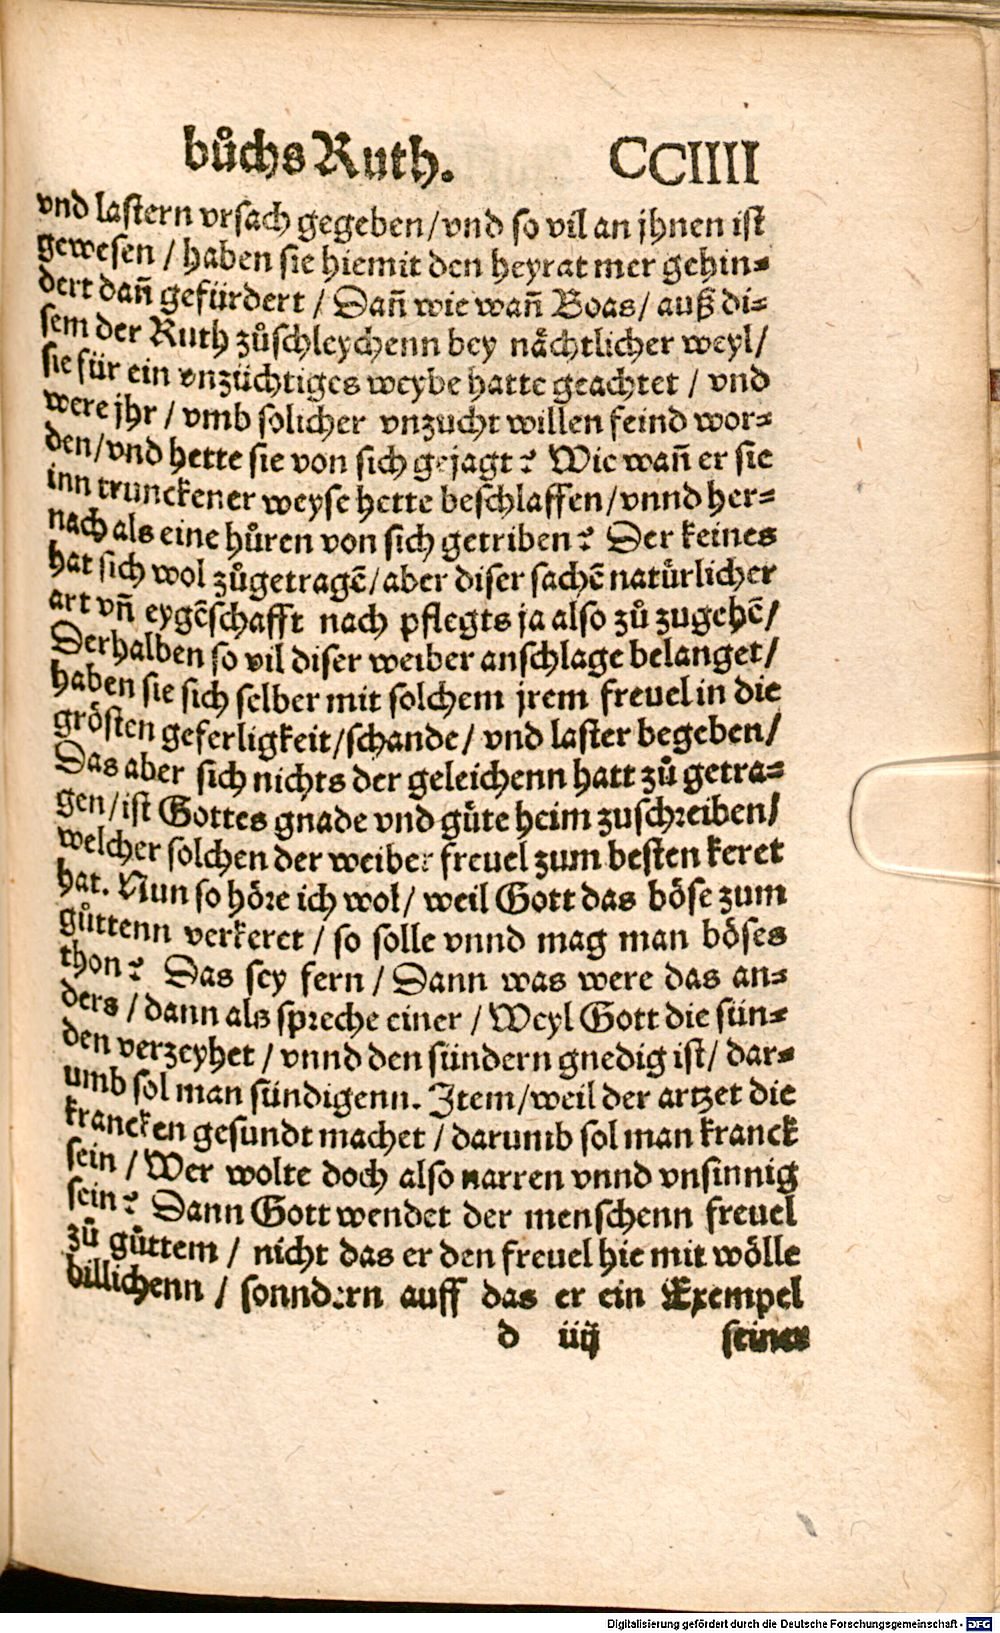 bůchs Ruth. CCIIII
vnd lastern vrsach gegeben/vnd so vil an jhnen ist
gewesen / haben sie hiemit den heyrat mer gehin-
dert dañ gefürdert / Dañ wie wañ Boas/ auß di-
sem der Ruth zůschleychenn bey nächtlicher weyl/
sie für ein vnzüchtiges weybe hatte geachtet / vnd
were jhr / vmb solicher vnzucht willen feind wor-
den/vnd hette sie von sich gejagt? Wie wañ er sie
inn trunckener weyse hette beschlaffen/vnnd her-
nach als eine hůren von sich getriben? Der keines
hat sich wol zůgetragē/aber diser sachē natürlicher
art vñ eygēschafft nach pflegts ja also zů zugehē/
Derhalben so vil diser weiber anschlage belanget/
haben sie sich selber mit solchem jrem freuel in die
grösten geferligkeit/schande/ vnd laster begeben/
Das aber sich nichts der geleichenn hatt zů getra-
gen/ist Gottes gnade vnd güte heim zuschreiben/
welcher solchen der weiber freuel zum besten keret
hat. Nun so höre ich wol/ weil Gott das böse zum
gůttenn verkeret / so solle vnnd mag man böses
thon? Das sey fern / Dann was were das an-
ders / dann als spreche einer / Weyl Gott die sün-
den verzeyhet / vnnd den sündern gnedig ist/ dar-
umb sol man sündigenn. Item/weil der artzet die
krancken gesundt machet / darumb sol man kranck
sein / Wer wolte doch also narren vnnd vnsinnig
sein? Dann Gott wendet der menschenn freuel
zů gůttem / nicht das er den freuel hie mit wölle
billichenn / sonndern auff das er ein Exempel
d iiij seiner
Digitalisierung gefördert durch die Deutsche Forschungsgemeinschaft - DFG